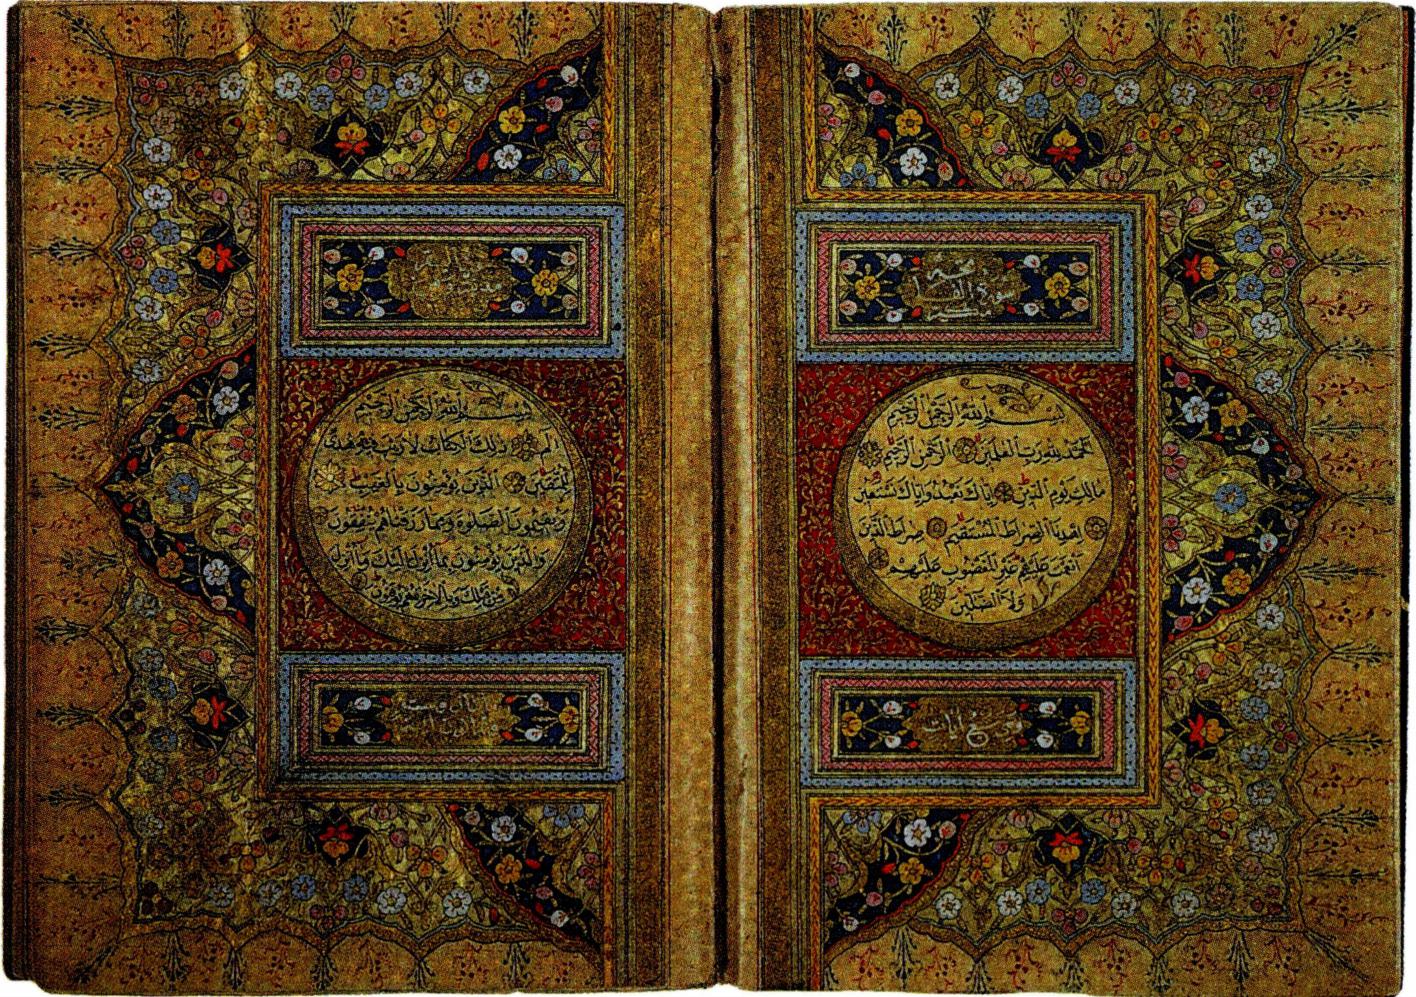 سورة الفاتحة
مكية
بسم الله الرحمن الرحيم
الحمد لله رب العلمين الرحمن الرحيم
مالك يوم الدين اياك نعبد واياك نستعين
اهدنا الصراط المستقيم صراط الذين
انعمت عليهم غير المغضوب عليهم
ولا الضالين
وهي سبع ايات
سورة البقرة
بسم الله الرحمن الرحيم
الم ذلك الكتاب لا ريب فيه هدى
للمتقين الذين يؤمنون بالغيب
ويقيمون الصلوة ومما رزقناهم ينفقون
والذين يؤمنون بما انزل اليك وما انزل
من قبلك وبالاخرة هم يوقنون